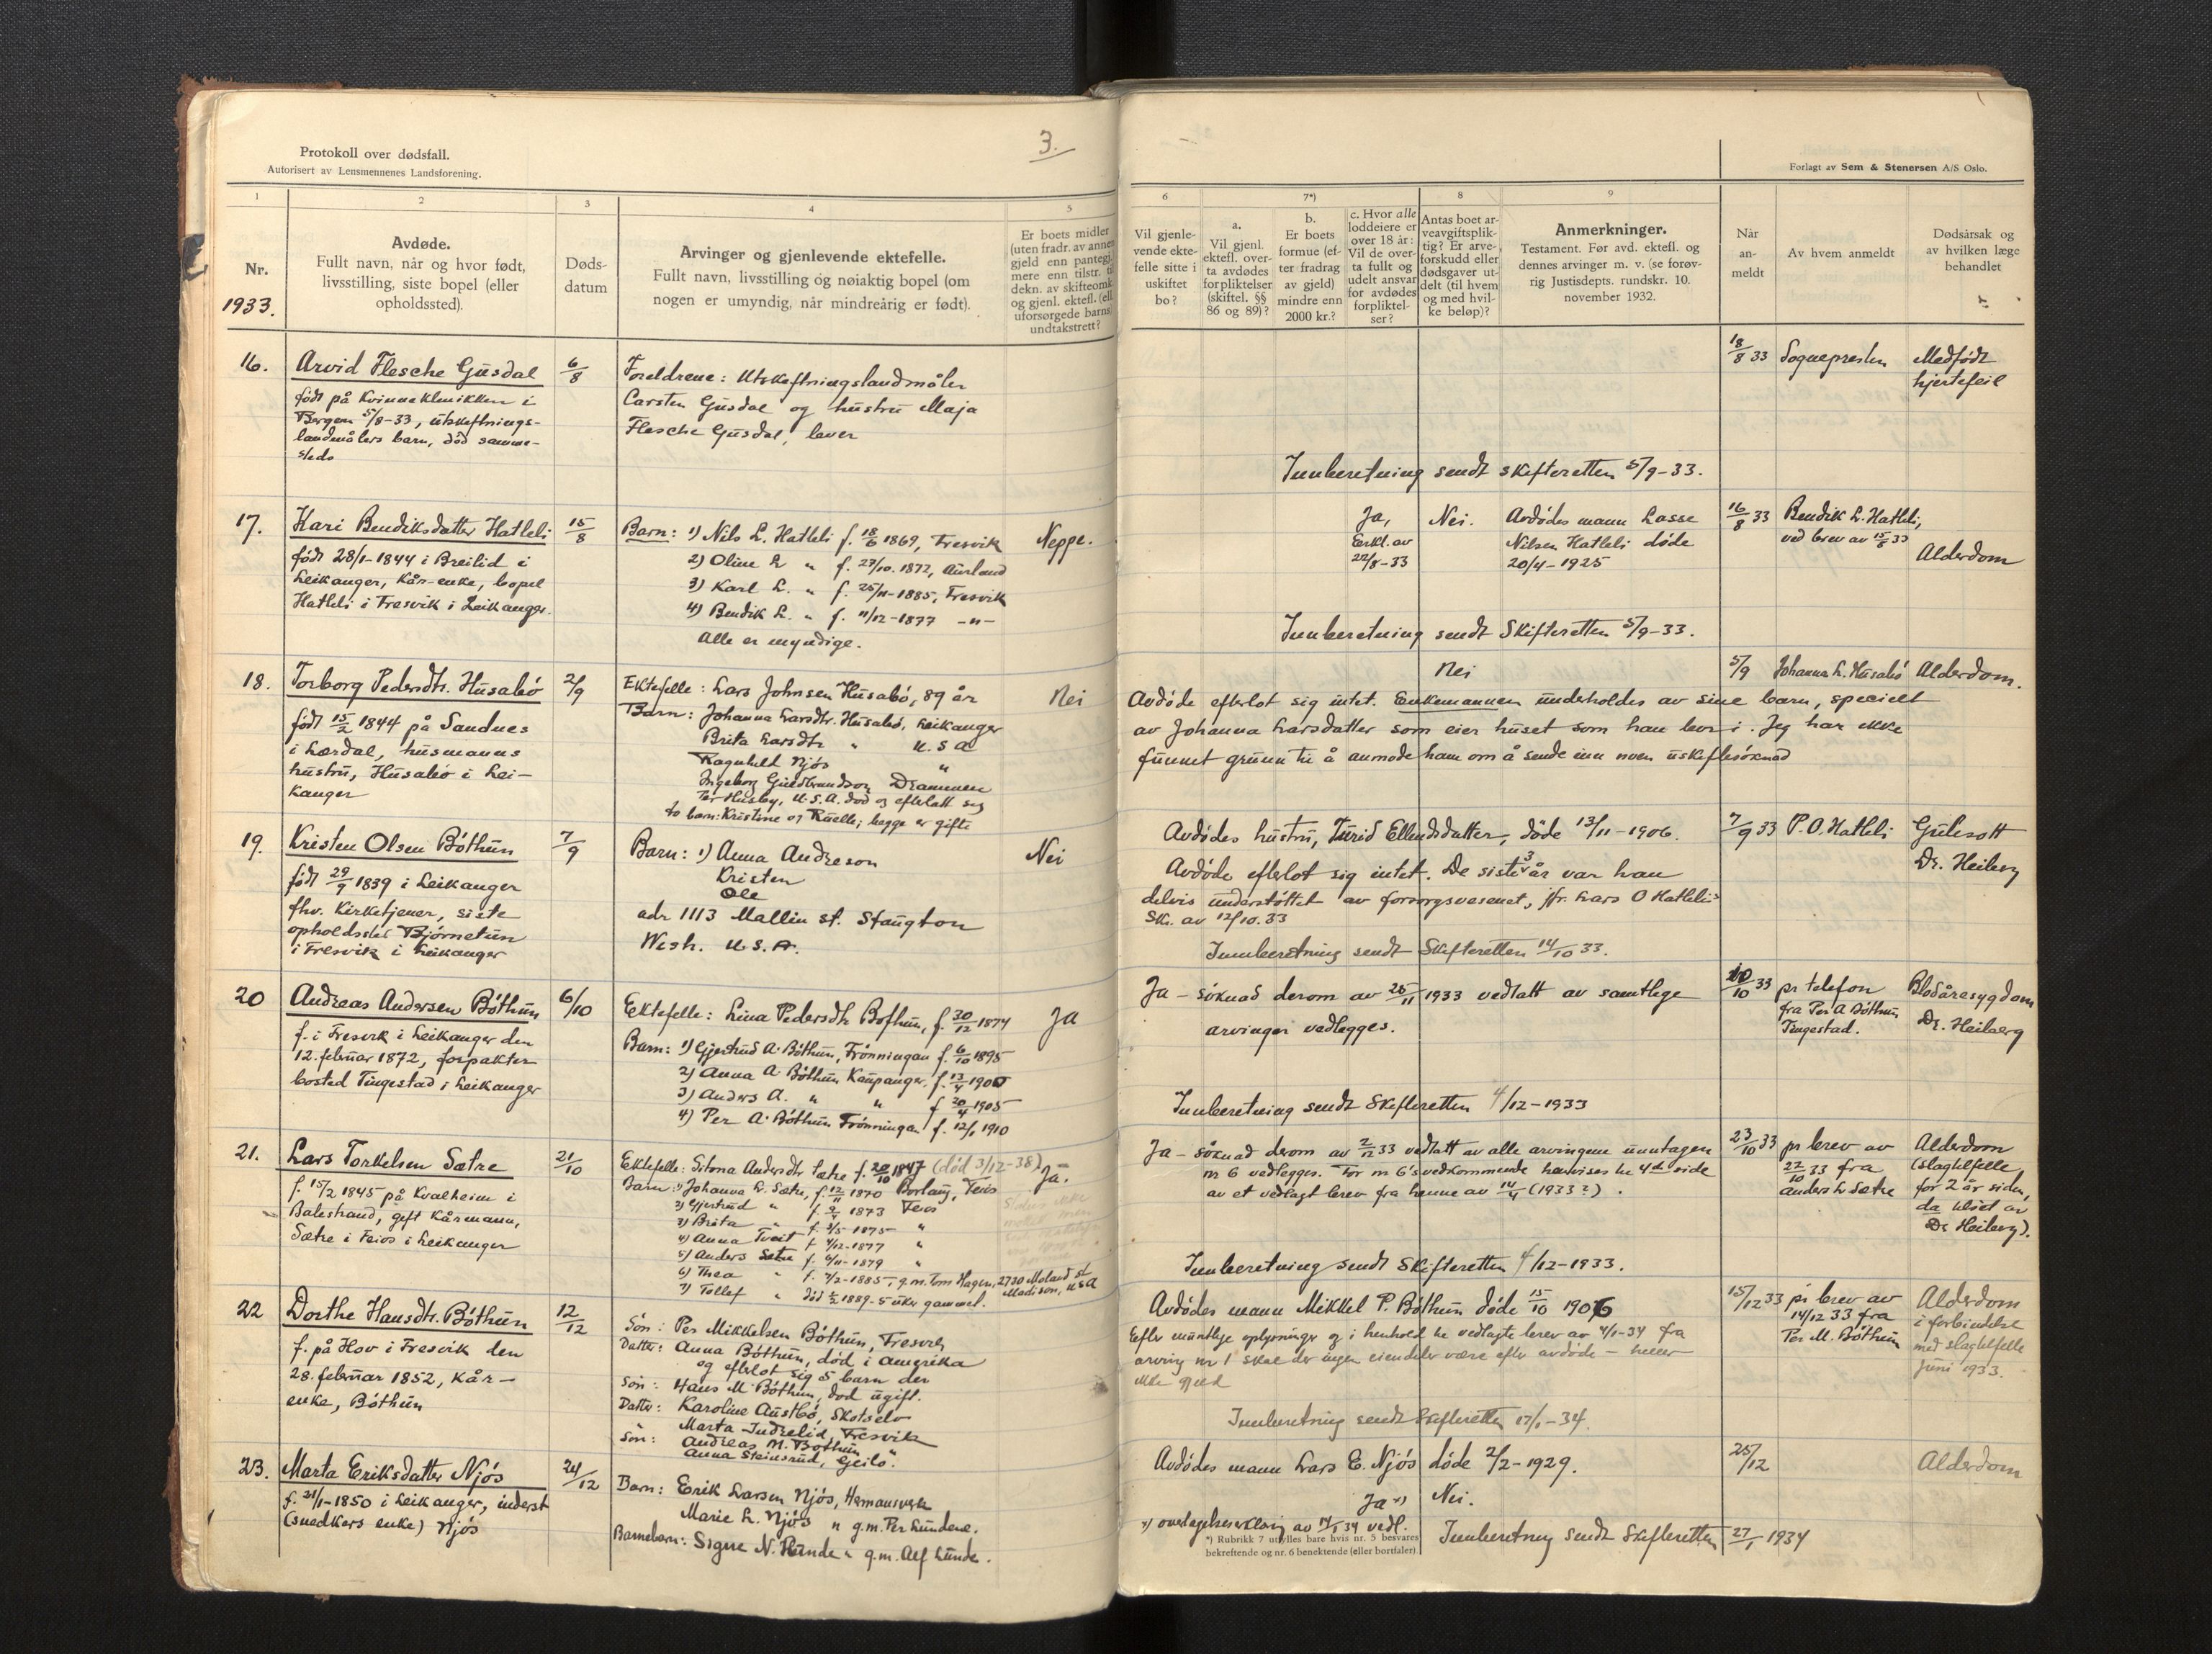 3.
Protokoll over dødsfall.
Autorisert av Lensmennenes Landsforening.
Forlagt av Sem & Stenersen A/S Oslo.
1 2 3 4 5 6 7*) 8 9
Nr.
1933.
Avdøde.
Fullt navn, når og hvor født,
livsstilling, siste bopel (eller
opholdssted).
Døds-
datum
Arvinger og gjenlevende ektefelle.
Fullt navn, livsstilling og nøiaktig bopel (om
nogen er umyndig, når mindreårig er født).
Er boets midler
(uten fradr. av annen
gjeld enn pantegj.
mere enn tilstr. til
dekn. av skifteomk.
og gjenl. ektef. (ell.
uforsørgede barns)
undtakstrett?
Vil gjenle-
vende ekte-
felle sitte i
uskiftet
bo?
a.
Vil gjenl.
ektefl. over-
ta avdødes
forpliktelser
(skiftel. §§
86 og 89)?
b.
Er boets
formue (ef-
ter fradrag
av gjeld)
mindre enn
2000 kr.?
c. Hvor alle
loddeiere er
over 18 år:
Vil de over-
ta fullt og
udelt ansvar
for avdødes
forpliktel-
ser?
Antas boet ar-
veavgiftsplik-
tig? Er arve-
forskudd eller
dødsgaver ut-
delt (til hvem
og med hvil-
ke beløp)?
Anmerkninger.
Testament. Før avd. ektefl. og
dennes arvinger m. v. (se forøv-
rig Justisdepts. rundskr. 10.
november 1932.
Når
an-
meldt
Av hvem anmeldt
Dødsårsak og
av hvilken læge
behandlet
16. Arvid Flesche Gusdal
født på Kvinneklinikken i
Bergen 5/8-33, utskiftnings-
landmålers barn, død samme-
steds
6/8
Foreldrene: Utskiftningslandmåler
Carsten Gusdal og hustru Maja
Flesche Gusdal, lever
18/8 33 Sognepresten
Medfødt
hjertefeil
Innberetning sendt skifteretten 5/9-33.
17. Kari Bendiksdatter Hatleli
født 28/1-1844 i Breilid i
Leikanger, kår-enke, bopel
Hatleli i Fresvik i Leikanger.
15/8
Barn: 1) Nils L. Hatleli f. 18/6 1869, Fresvik
2) Oline L " f. 27/10. 1872, Aurland
3) Karl L. " f. 25/11-1885, Fresvik
4) Bendik L. " f. 11/12-1877 -"-
Alle er myndige.
Neppe.
Ja,
Erkl. av
22/8-33
Nei.
Avdødes mann Lasse
Nilsen Hatleli døde
20/4-1925
16/8 33 Bendik L. Hatleli,
ved brev av 15/8 33
Alderdom
Innberetning sendt Skifteretten 5/9-33.
18. Torborg Pedersdtr. Husabø
født 15/2 1844 på Sandnes
i Lærdal, husmanns
hustru, Husabø i Lei-
kanger
2/9
Ektefelle: Lars Johnsen Husabø, 89 år
Barn: Johanna Larsdtr. Husabø, Leikanger
Brita Larsdtr " U.S.A
Ragnhild Njøs "
Ingeborg Gudbrandson Drammen
Per Husby, U.S.A. død og efterlatt sig
to barn: Kristine og Ruelle; begge er gifte
Nei
Nei
5/9 Johanna L. Husabø
Alderdom.
Avdøde efterlot sig intet. Enkemannen underholdes av sine barn, specielt
av Johanna Larsdatter som eier huset som han bor i. Jeg har ikke
funnet grunn til å anmode ham om å sende inn noen uskiftesøknad
19. Kristen Olsen Bøthun
født 29/9 1839 i Leikanger
fhv. Kirketjener, siste
opholdssted Bjørnetun
i Fresvik i Leikanger
7/9
Barn: 1) Anna Andreson
Kristen
Ole
adr 1113 Mallin st. Staugton
Wesh. U.S.A.
Nei
Avdødes hustru, Turid Ellendsdatter, døde 13/11-1906.
Avdøde efterlot sig intet. De siste 3 år var han
delvis understøttet av forsorgsvesenet, jfr. Lars O Hatlelis
Sk. av 12/10.33
Innberetning sendt Skifteretten 14/10 33.
7/9 33 P.O. Hatleli
Gulesott
Dr. Heiberg
20 Andreas Andersen Bøthun
f. i Fresvik i Leikanger den
12. februar 1872, forpakter
bosted Tingestad i Leikanger
6/10
Ektefelle: Lina Pedersdtr Bøthun, f. 30/12 1874
Barn: 1) Gjertrud A. Bøthun, Frønningen f. 6/10 1895
2) Anna A. Bøthun Kaupanger. f. 13/4 1900
3) Anders A. " " f 20/4 1905
4) Per A. Bøthun Frønningen f. 12/1 1910
Ja
Ja - søknad derom av 25/11 1933 vedtatt av samtlige
arvinger vedlegges.
Innberetning sendt Skifteretten 4/12-1933
10/10 33 pr telefon
fra Per A Bøthun
Tingestad.
Blodåresygdom
Dr. Heiberg
21. Lars Torkelsen Sætre
f. 15/2 1845 på Kvalheim i
Balestrand, gift kårmann,
Sætre i Feios i Leikanger
21/10
Ektefelle: Sitona Andersdtr Sætre f. 20/10 1847 (død 3/12-38)
Barn: 1) Johanna L. Sætre, f. 12/11 1870 Borlaug, Feios
2) Gjertrud " f. 9/4 1873 Feios
3) Brita " f. 3/5-1875 "
4) Anna Tveit f. 4/12-1877 "
5) Anders Sætre f. 6/11-1879 "
6) Thea " f. 4/2-1885, g.m. Tom Hagen, 2730 Moland st
Madison, U.S.A
7) Tollef " død 5/2 1889-5 uker gammel.
Ja.
Ja - søknad derom av 2/12 33 vedtatt av alle arvingene unntagen
nr 6 vedlegges. For nr 6's vedkommende henvises til 4de side
av et vedlagt brev fra henne av 14/4 (1933?).
Innberetning sendt Skifteretten 4/12-1933.
23/10 33 pr brev av
22/10 33 fra
Anders L Sætre
Alderdom
(slagtilfelle
for 2 år siden,
da tilset av
Dr. Heiberg).
22 Dorthe Hansdtr. Bøthun
f. på Hov i Fresvik den
28. februar 1852, kår-
enke, Bøthun
12/12
Søn: Per Mikkelsen Bøthun, Fresvik
Datter: Anna Bøthun, død i Amerika
og efterlot sig 5 barn der
Søn: Hans M Bøthun, død ugift.
Datter: Karoline Austbø, Skotselv
" Marta Indrelid, Fresvik
Søn: Andreas M. Bøthun "
Anna Steinsrud, Geilo.
Avdødes mann Mikkel P. Bøthun døde 15/10 1906
Efter muntlige oplysninger og i henhold til vedlagte brev av 4/1-34 fra
arving nr 1 skal der ingen eiendeler være efter avdøde - heller
ikke gjeld
Innberetning sendt Skifteretten 17/1-34.
15/12 33 pr brev av
14/12 33 fra
Per M. Bøthun
Alderdom
i forbindelse
med slagtilfelle
Juni 1933.
23. Marta Eriksdatter Njøs
f. 31/1-1850 i Leikanger, inderst
(snedkers enke) Njøs
24/12
Barn: Erik Larsen Njøs, Hermansverk
Marie L. Njøs " g.m. Per Lundene.
Barnebarn: Signe N. Hunde " g.m. Alf Lunde.
Avdødes mann Lars E. Njøs døde 2/2-1929.
Ja x) Nei.
x) overtagelseserklæring av 14/1 34 vedl.
Innberetning sendt Skifteretten 27/1 1934
25/12
Alderdom
*) Rubrikk 7 utfylles bare hvis nr. 5 besvares
bekreftende og nr. 6 benektende (eller bortfaler).